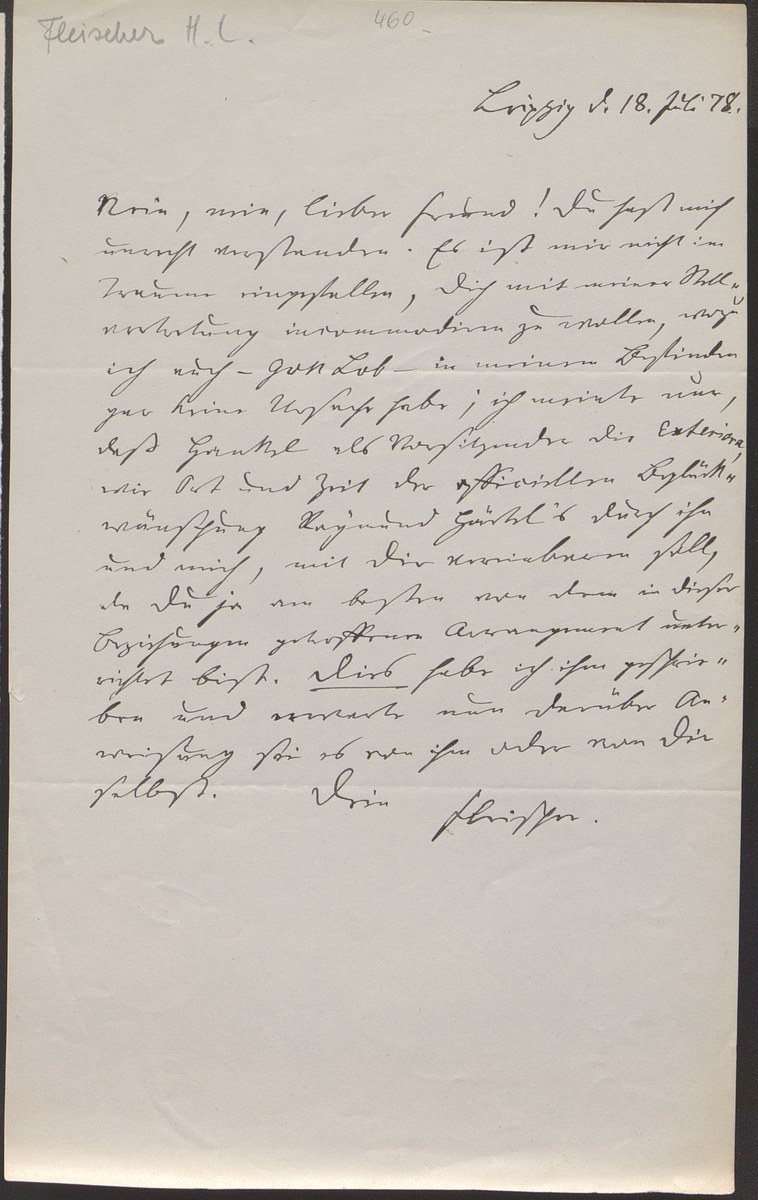 Fleischer H. L.
460
Leipzig d. 18. Juli 78.
Nein, nein, lieber Freund! Du hast mich
unrecht verstanden. Es ist mir nicht im
Traume eingefallen, Dich mit meiner Stell-
vertretung incommodiren zu wollen, wozu
ich auch – Gott Lob – in meinem Befinden
gar keine Ursache habe; ich meinte nur,
daß Hankel als Vorsitzender die Exteriora,
wie Ort und Zeit der officiellen Beglück-
wünschung Raymund Härtel's durch ihn
und mich, mit Dir vereinbaren soll,
da Du ja am besten von dem in dieser
Beziehungen getroffenen Arrangement unter-
richtet bist. Dies habe ich ihm geschrie-
ben und erwarte nun darüber An-
weisung sei es von ihm oder von Dir
selbst. Dein Fleischer.